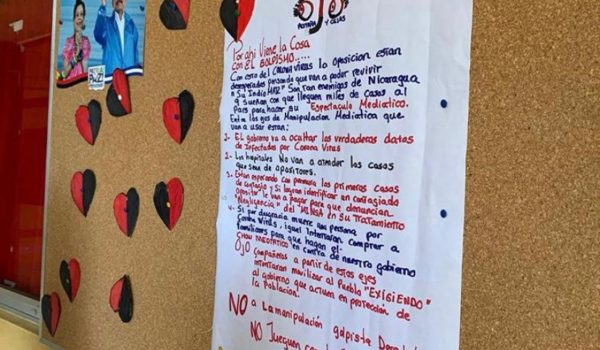 OJO
PESTAÑA Y CEJAS
Por ahi Viene la Cosa
con EL GOLPISMO....
Con esto del CORONA VIRUS La oposicion estan
desesperados pensando que van a poder revivir
"Su Indio MUTZ" Son tan enemigos de Nicaragua
q sueñan con que lleguen miles de casos al
País para hacer su Espectaculo Mediatico.
Entre los ejes de Manipulacion Mediatica que
van a usar estan:
1- EL gobierno va a ocultar las verdaderas datos
de Infectados por Corona Virus
2- Los hospitales No van a atender los casos
que sean de opositores.
3- Estan esperando con premura los primeros casos
de contagio y Si logran identificar un contagiado
opositor le van a pagar para que denuncien
"Negligencia" del MINSA en su tratamiento
4- Si por desgracia muere una persona por
Corona Virus, igual intentaran comprar a
familiares para que hagan el
SHOW MEDIATICO en contra de nuestro gobierno
OJO Compañeros a partir de estos ejes
intentaran movilizar al Pueblo "EXIGIENDO"
al gobierno que actue en protección de
la Población.
NO a La manipulación golpista
NO Jueguen con